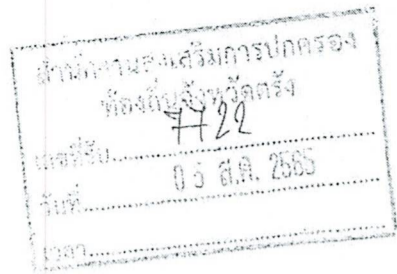 สำนักงานส่งเสริมการปกครอง
ท้องถิ่นจังหวัดตรัง
เลขที่รับ 7722
วันที่ 05 ส.ค. 2565
เวลา